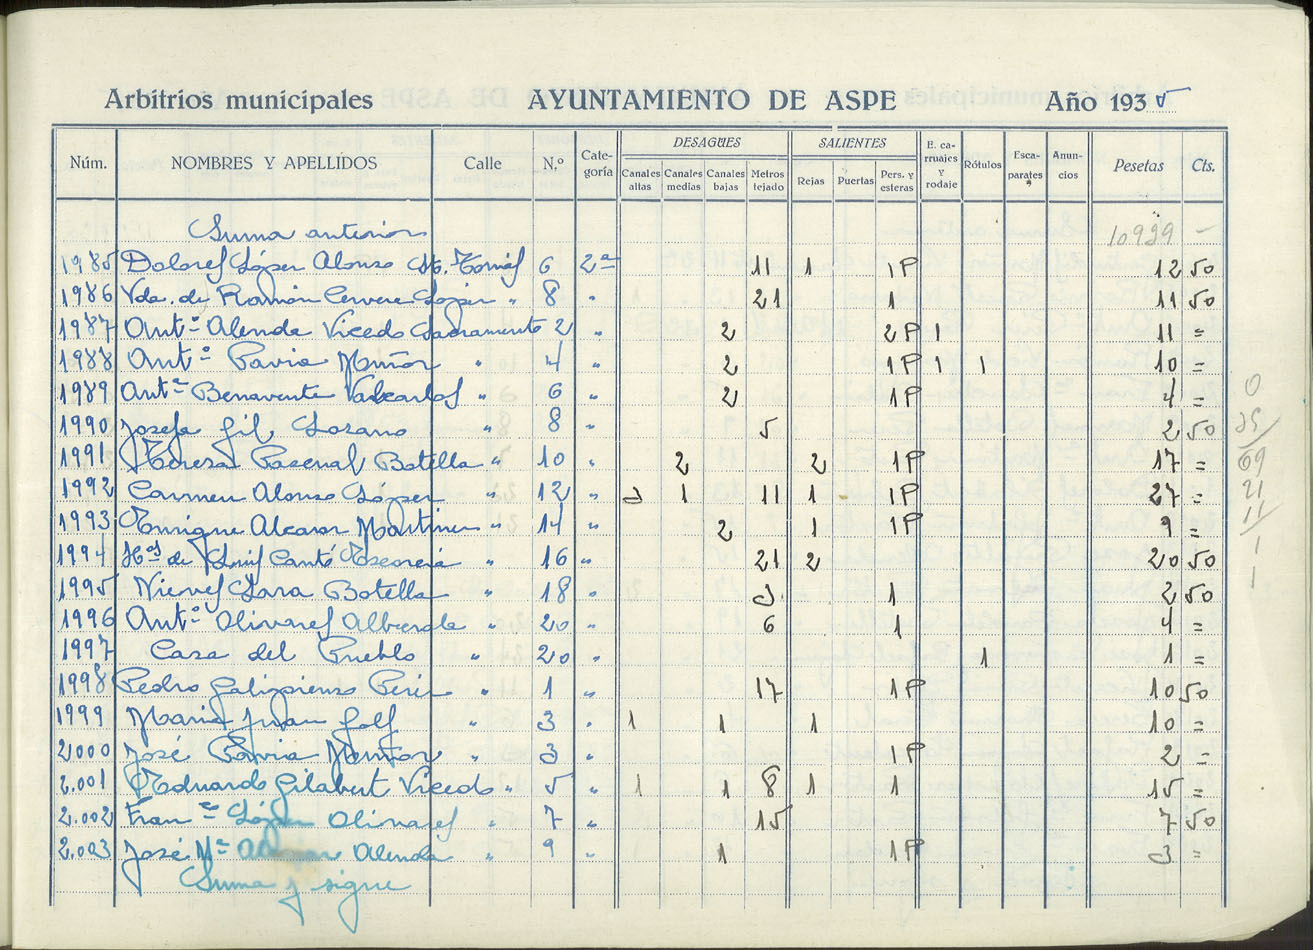 Arbitrios municipales AYUNTAMIENTO DE ASPE Año 1935
DESAGÜES SALIENTES
Núm. NOMBRES Y APELLIDOS Calle N.º Cate-goría Canales altas Canales medias Canales bajas Metros tejado Rejas Puertas Pers. y esteras E. ca-rruajes y rodaje Rótulos Esca-parates Anun-cios Pesetas Cts.
Suma anterior 10929 -
1985 Dolores López Alonso Sto. Tomás 6 2ª 11 1 1P 12 50
1986 Vda. de Ramón Cervere López " 8 " 21 1 11 50
1987 Antº Alenda Vicedo Sacramento 2 " 2 2P 1 11 =
1988 Antº Pavia Muñoz " 4 " 2 1P 1 1 10 =
1989 Antª Benavente Valcarlos " 6 " 2 1P 4 =
1990 Josefa Gil Lozano " 8 " 5 2 50
1991 Teresa Pascual Botella " 10 " 2 2 1P 17 =
1992 Carmen Alonso López " 12 " 3 1 11 1 1P 27 =
1993 Enrique Alcaraz Martinez " 14 " 2 1 1P 9 =
1994 Hos de Luis Cantó " 16 " 21 2 20 50
1995 Nieves Lara Botella " 18 " 3 1 2 50
1996 Antº Olivares " 20 " 6 1 4 =
1997 Casa del Pueblo " 20 " 1 1 =
1998 Pedro Galipienso Perez " 1 " 17 1P 10 50
1999 Maria Juan " 3 " 1 1 1 10 =
2000 José Pavia " 3 " 1P 2 =
2.001 Eduardo Gilabert Vicedo " 5 " 1 1 8 1 1 15 =
2.002 Franco López Olivares " 7 " 15 7 50
2.003 José Mª Alenda " 9 " 1 1P 3 =
Suma y sigue
0
25
69
21
11
1
1